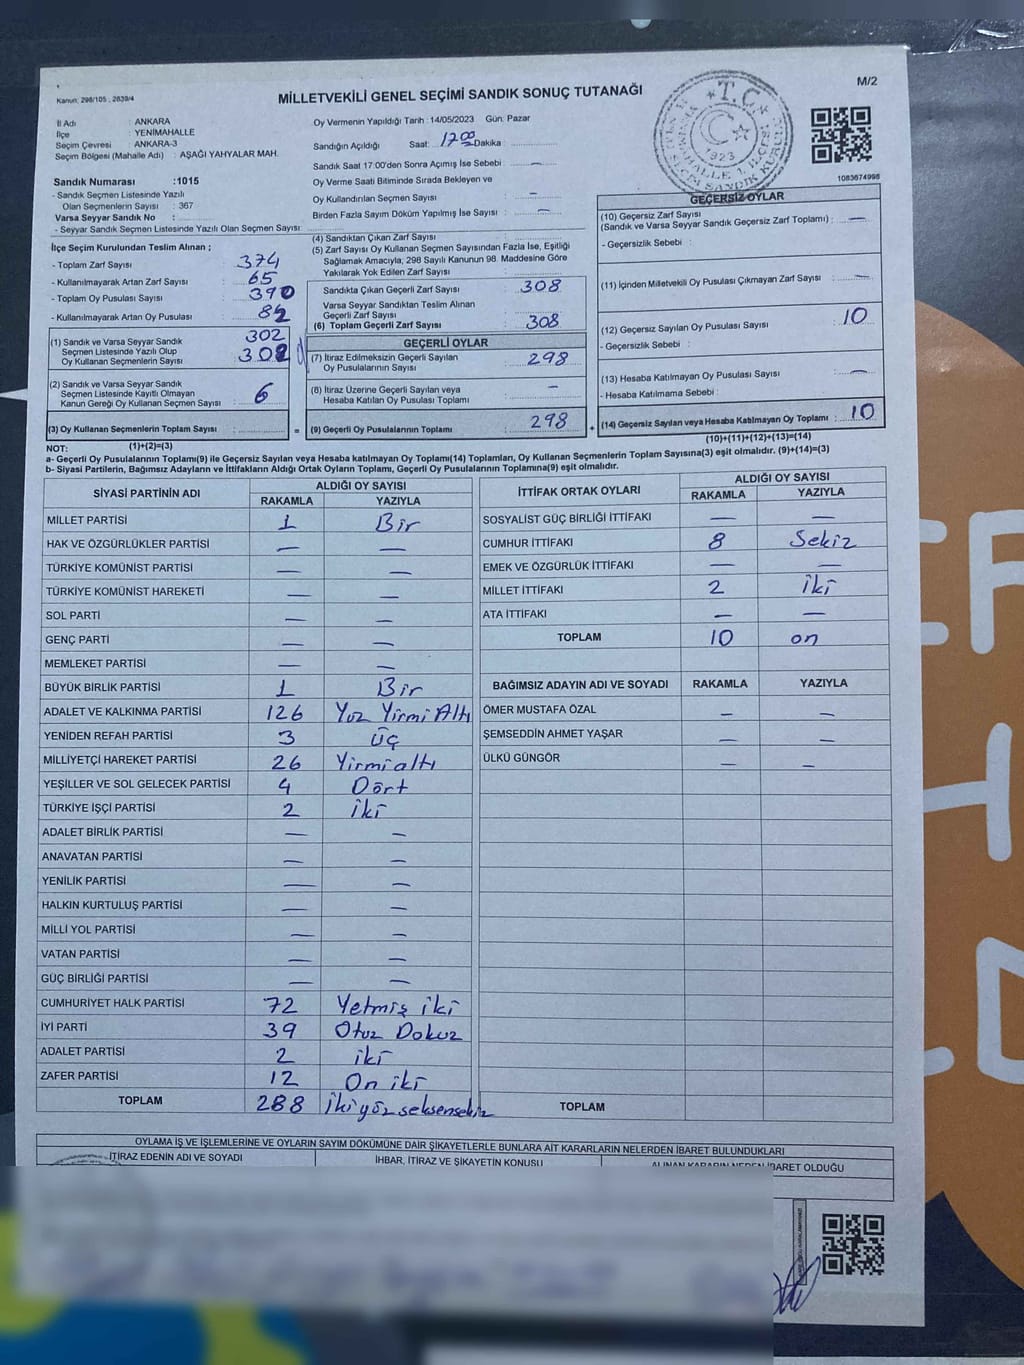 M/2
Kanun: 298/105 ; 2839/4
MİLLETVEKİLİ GENEL SEÇİMİ SANDIK SONUÇ TUTANAĞI
İl Adı : ANKARA
İlçe : YENİMAHALLE
Seçim Çevresi : ANKARA-3
Seçim Bölgesi (Mahalle Adı) : AŞAĞI YAHYALAR MAH.
Oy Vermenin Yapıldığı Tarih :14/05/2023 Gün: Pazar
Sandığın Açıldığı Saat: 17.00 Dakika :
Sandık Saat 17:00'den Sonra Açılmış İse Sebebi : —
Oy Verme Saati Bitiminde Sırada Bekleyen ve
Oy Kullandırılan Seçmen Sayısı : —
Birden Fazla Sayım Döküm Yapılmış İse Sayısı : —
T.C.
1923
1083674998
Sandık Numarası :1015
- Sandık Seçmen Listesinde Yazılı
Olan Seçmenlerin Sayısı : 367
Varsa Seyyar Sandık No :
- Seyyar Sandık Seçmen Listesinde Yazılı Olan Seçmen Sayısı:
İlçe Seçim Kurulundan Teslim Alınan ;
- Toplam Zarf Sayısı : 374
- Kullanılmayarak Artan Zarf Sayısı : 65
- Toplam Oy Pusulası Sayısı : 390
- Kullanılmayarak Artan Oy Pusulası : 82
302
(1) Sandık ve Varsa Seyyar Sandık
Seçmen Listesinde Yazılı Olup
Oy Kullanan Seçmenlerin Sayısı : 302
(2) Sandık ve Varsa Seyyar Sandık
Seçmen Listesinde Kayıtlı Olmayan
Kanun Gereği Oy Kullanan Seçmen Sayısı : 6
(3) Oy Kullanan Seçmenlerin Toplam Sayısı :
(1)+(2)=(3)
(4) Sandıktan Çıkan Zarf Sayısı :
(5) Zarf Sayısı Oy Kullanan Seçmen Sayısından Fazla İse, Eşitliği
Sağlamak Amacıyla, 298 Sayılı Kanunun 98. Maddesine Göre
Yakılarak Yok Edilen Zarf Sayısı :
Sandıkta Çıkan Geçerli Zarf Sayısı : 308
Varsa Seyyar Sandıktan Teslim Alınan
Geçerli Zarf Sayısı :
(6) Toplam Geçerli Zarf Sayısı : 308
GEÇERLİ OYLAR
(7) İtiraz Edilmeksizin Geçerli Sayılan
Oy Pusulalarının Sayısı : 298
(8) İtiraz Üzerine Geçerli Sayılan veya
Hesaba Katılan Oy Pusulası Toplamı : —
= (9) Geçerli Oy Pusulalarının Toplamı : 298
GEÇERSİZ OYLAR
(10) Geçersiz Zarf Sayısı
(Sandık ve Varsa Seyyar Sandık Geçersiz Zarf Toplamı) : —
- Geçersizlik Sebebi :
(11) İçinden Milletvekili Oy Pusulası Çıkmayan Zarf Sayısı : —
(12) Geçersiz Sayılan Oy Pusulası Sayısı : 10
- Geçersizlik Sebebi :
(13) Hesaba Katılmayan Oy Pusulası Sayısı : —
- Hesaba Katılmama Sebebi :
+ (14) Geçersiz Sayılan veya Hesaba Katılmayan Oy Toplamı : 10
(10)+(11)+(12)+(13)=(14)
NOT:
a- Geçerli Oy Pusulalarının Toplamı(9) ile Geçersiz Sayılan veya Hesaba katılmayan Oy Toplamı(14) Toplamları, Oy Kullanan Seçmenlerin Toplam Sayısına(3) eşit olmalıdır. (9)+(14)=(3)
b- Siyasi Partilerin, Bağımsız Adayların ve İttifakların Aldığı Ortak Oyların Toplamı, Geçerli Oy Pusulalarının Toplamına(9) eşit olmalıdır.
SİYASİ PARTİNİN ADI ALDIĞI OY SAYISI
RAKAMLA YAZIYLA
MİLLET PARTİSİ 1 Bir
HAK VE ÖZGÜRLÜKLER PARTİSİ — —
TÜRKİYE KOMÜNİST PARTİSİ — —
TÜRKİYE KOMÜNİST HAREKETİ — —
SOL PARTİ — —
GENÇ PARTİ — —
MEMLEKET PARTİSİ — —
BÜYÜK BİRLİK PARTİSİ 1 Bir
ADALET VE KALKINMA PARTİSİ 126 Yüz Yirmi Altı
YENİDEN REFAH PARTİSİ 3 Üç
MİLLİYETÇİ HAREKET PARTİSİ 26 Yirmi altı
YEŞİLLER VE SOL GELECEK PARTİSİ 4 Dört
TÜRKİYE İŞÇİ PARTİSİ 2 iki
ADALET BİRLİK PARTİSİ — —
ANAVATAN PARTİSİ — —
YENİLİK PARTİSİ — —
HALKIN KURTULUŞ PARTİSİ — —
MİLLİ YOL PARTİSİ — —
VATAN PARTİSİ — —
GÜÇ BİRLİĞİ PARTİSİ — —
CUMHURİYET HALK PARTİSİ 72 Yetmiş iki
İYİ PARTİ 39 Otuz Dokuz
ADALET PARTİSİ 2 iki
ZAFER PARTİSİ 12 On iki
TOPLAM 288 ikiyüzseksensekiz
İTTİFAK ORTAK OYLARI ALDIĞI OY SAYISI
RAKAMLA YAZIYLA
SOSYALİST GÜÇ BİRLİĞİ İTTİFAKI — —
CUMHUR İTTİFAKI 8 Sekiz
EMEK VE ÖZGÜRLÜK İTTİFAKI — —
MİLLET İTTİFAKI 2 iki
ATA İTTİFAKI — —
TOPLAM 10 on
BAĞIMSIZ ADAYIN ADI VE SOYADI RAKAMLA YAZIYLA
ÖMER MUSTAFA ÖZAL — —
ŞEMSEDDİN AHMET YAŞAR — —
ÜLKÜ GÜNGÖR — —
TOPLAM
OYLAMA İŞ VE İŞLEMLERİNE VE OYLARIN SAYIM DÖKÜMÜNE DAİR ŞİKAYETLERLE BUNLARA AİT KARARLARIN NELERDEN İBARET BULUNDUKLARI
İTİRAZ EDENİN ADI VE SOYADI İHBAR, İTİRAZ VE ŞİKAYETİN KONUSU ALINAN KARARIN NEDEN İBARET OLDUĞU